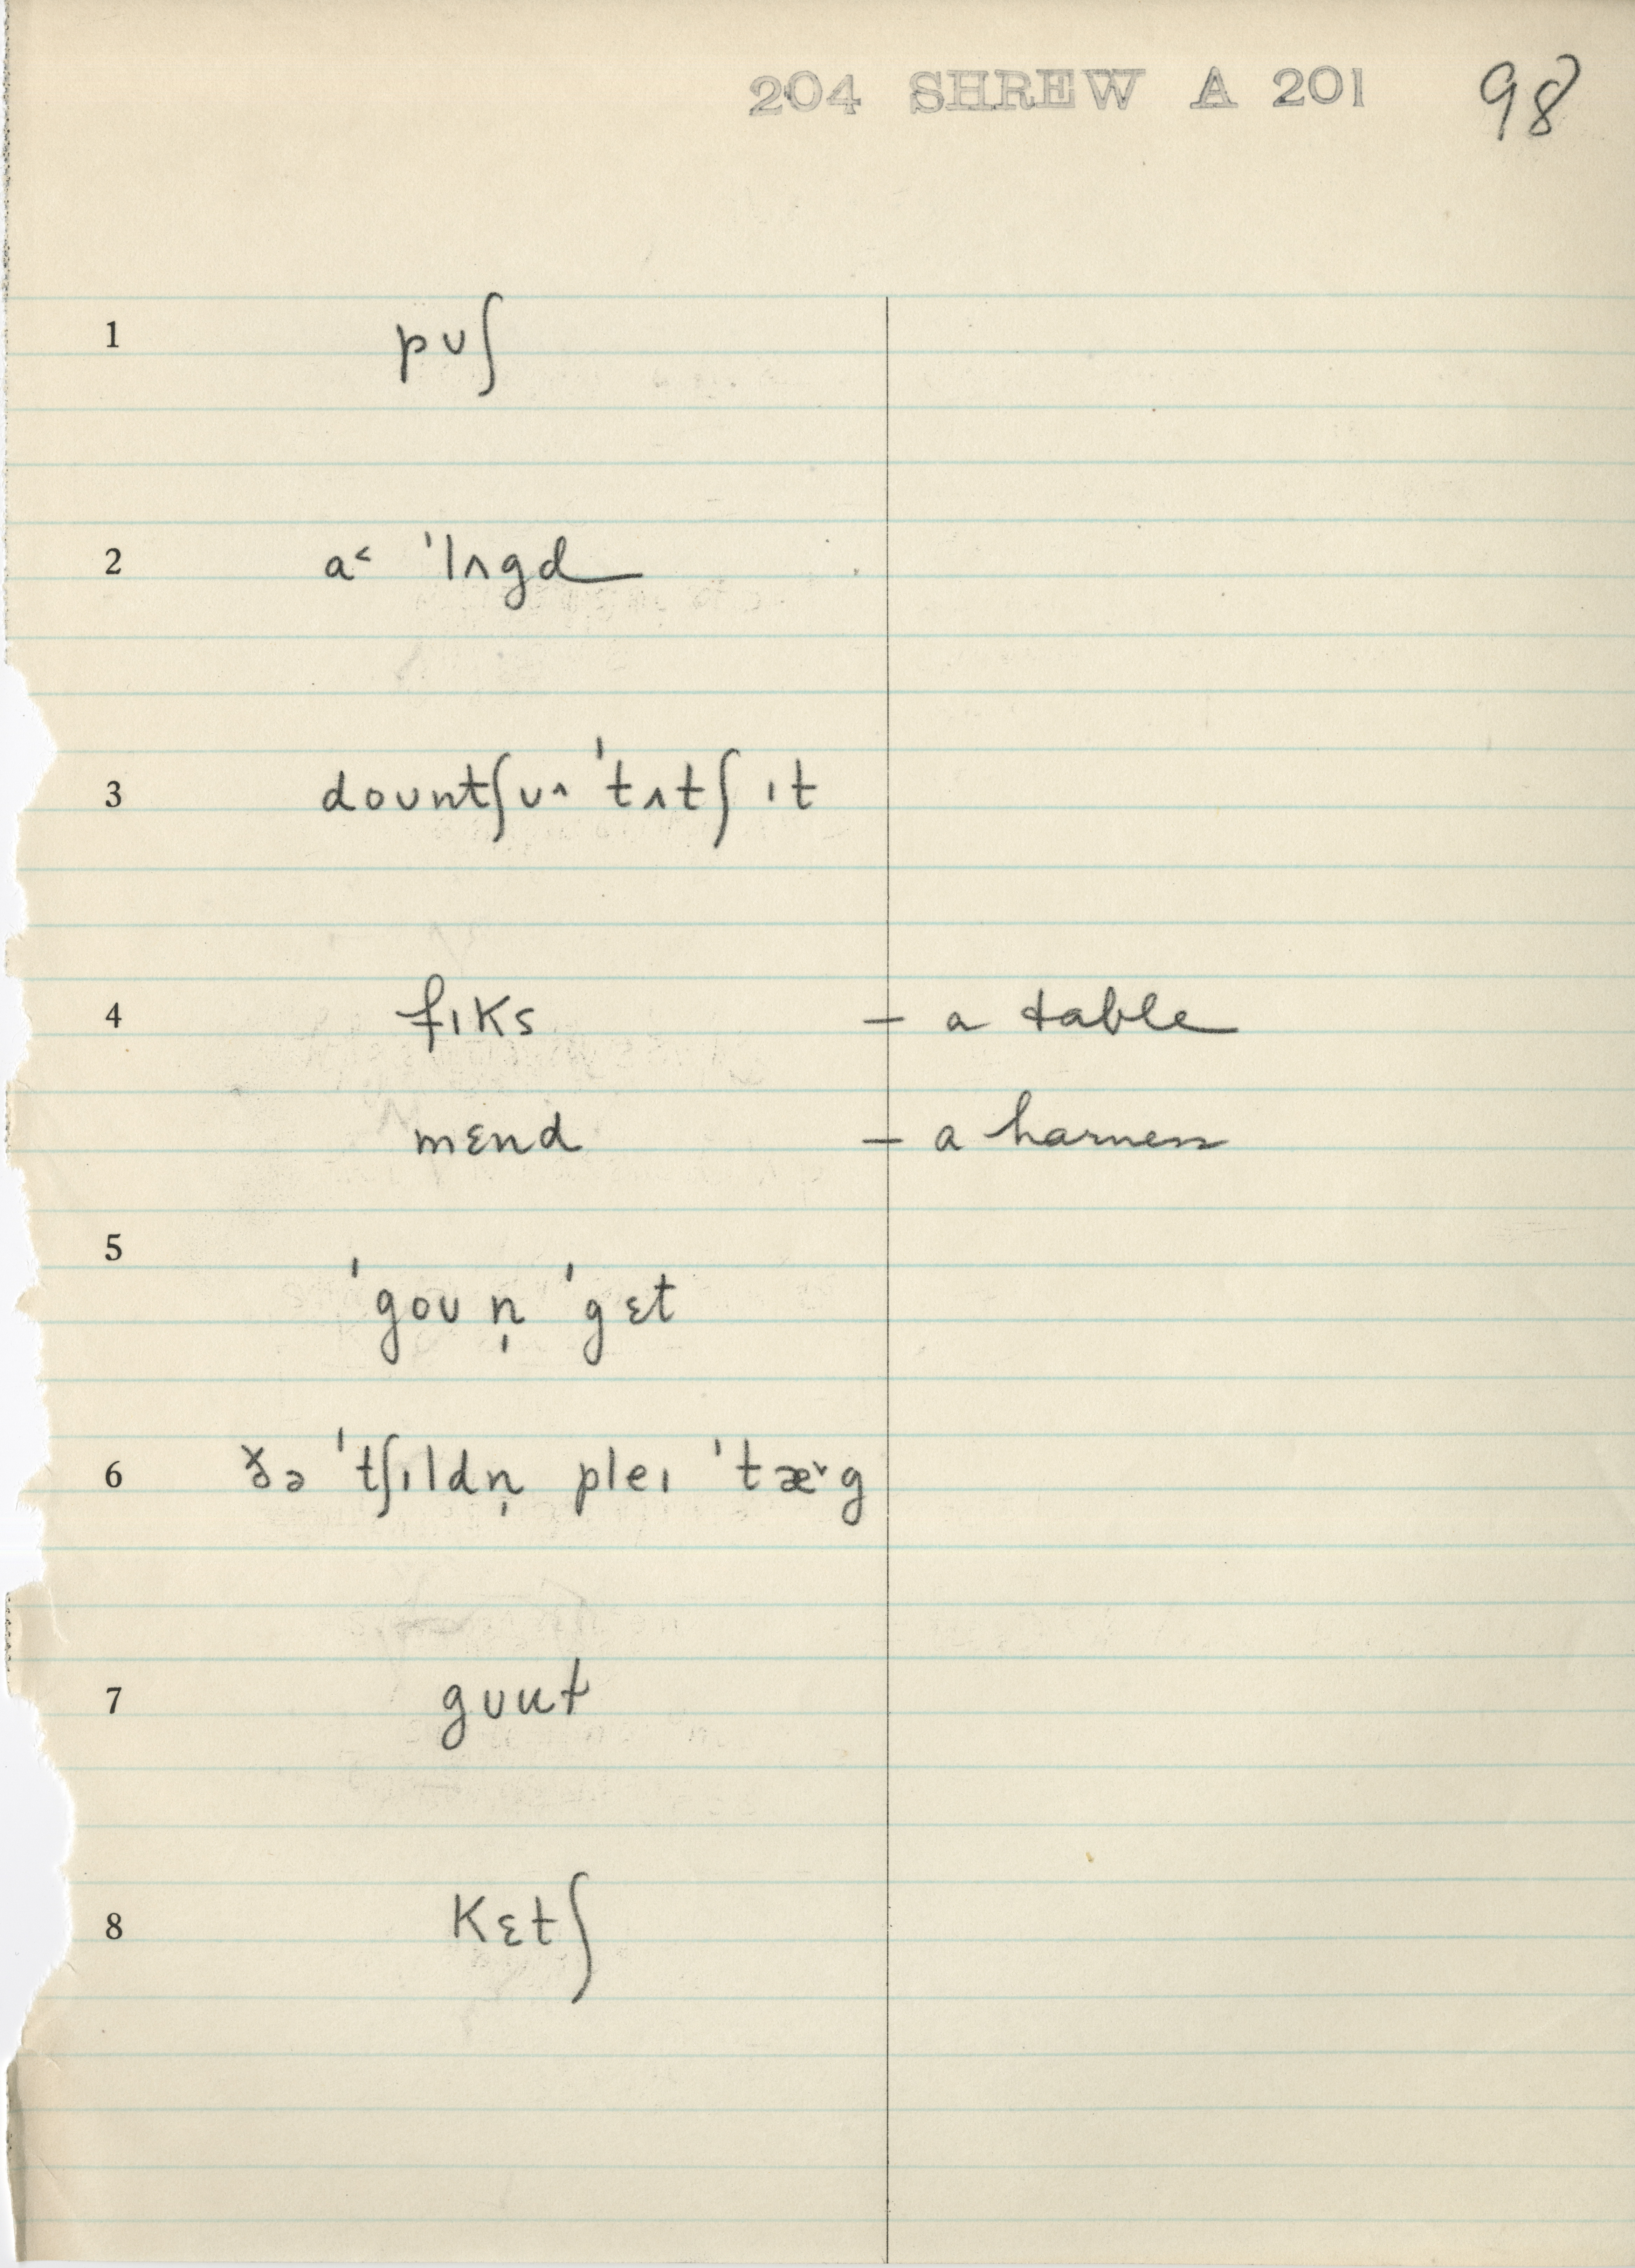 204 SHREW A 201 98
1 pʊʃ
2 a˂ ˈlʌgd
3 doʊntʃʊ^ ˈtʌtʃ ɪt
4 fɪks – a table
mɛnd – a harness
5
ˈgoʊ n̩ ˈgɛt
6 ðə ˈtʃɪldn̩ pleɪ ˈtæ˅g
7 gʊut
8 kɛtʃ